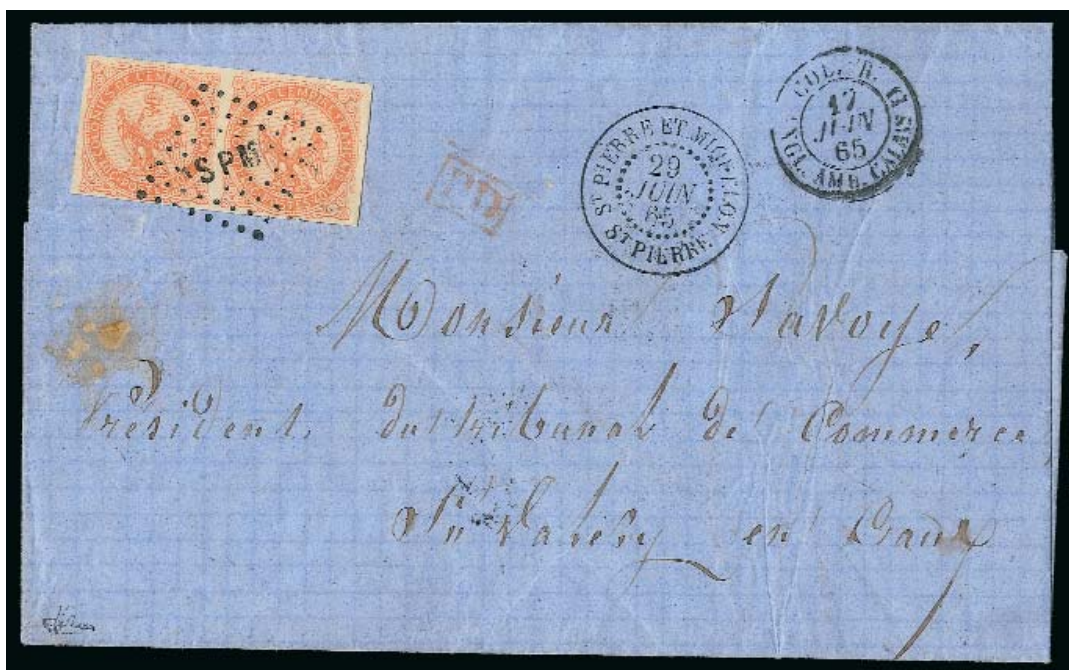 SPM
PD
ST PIERRE ET MIQUELON
29
JUIN
65
ST PIERRE
COL. FR.
17
JUIN
65
ANGL. AMB. CALAIS
Monsieur Savoye,
Président du tribunal de Commerce
St Valery en Caux